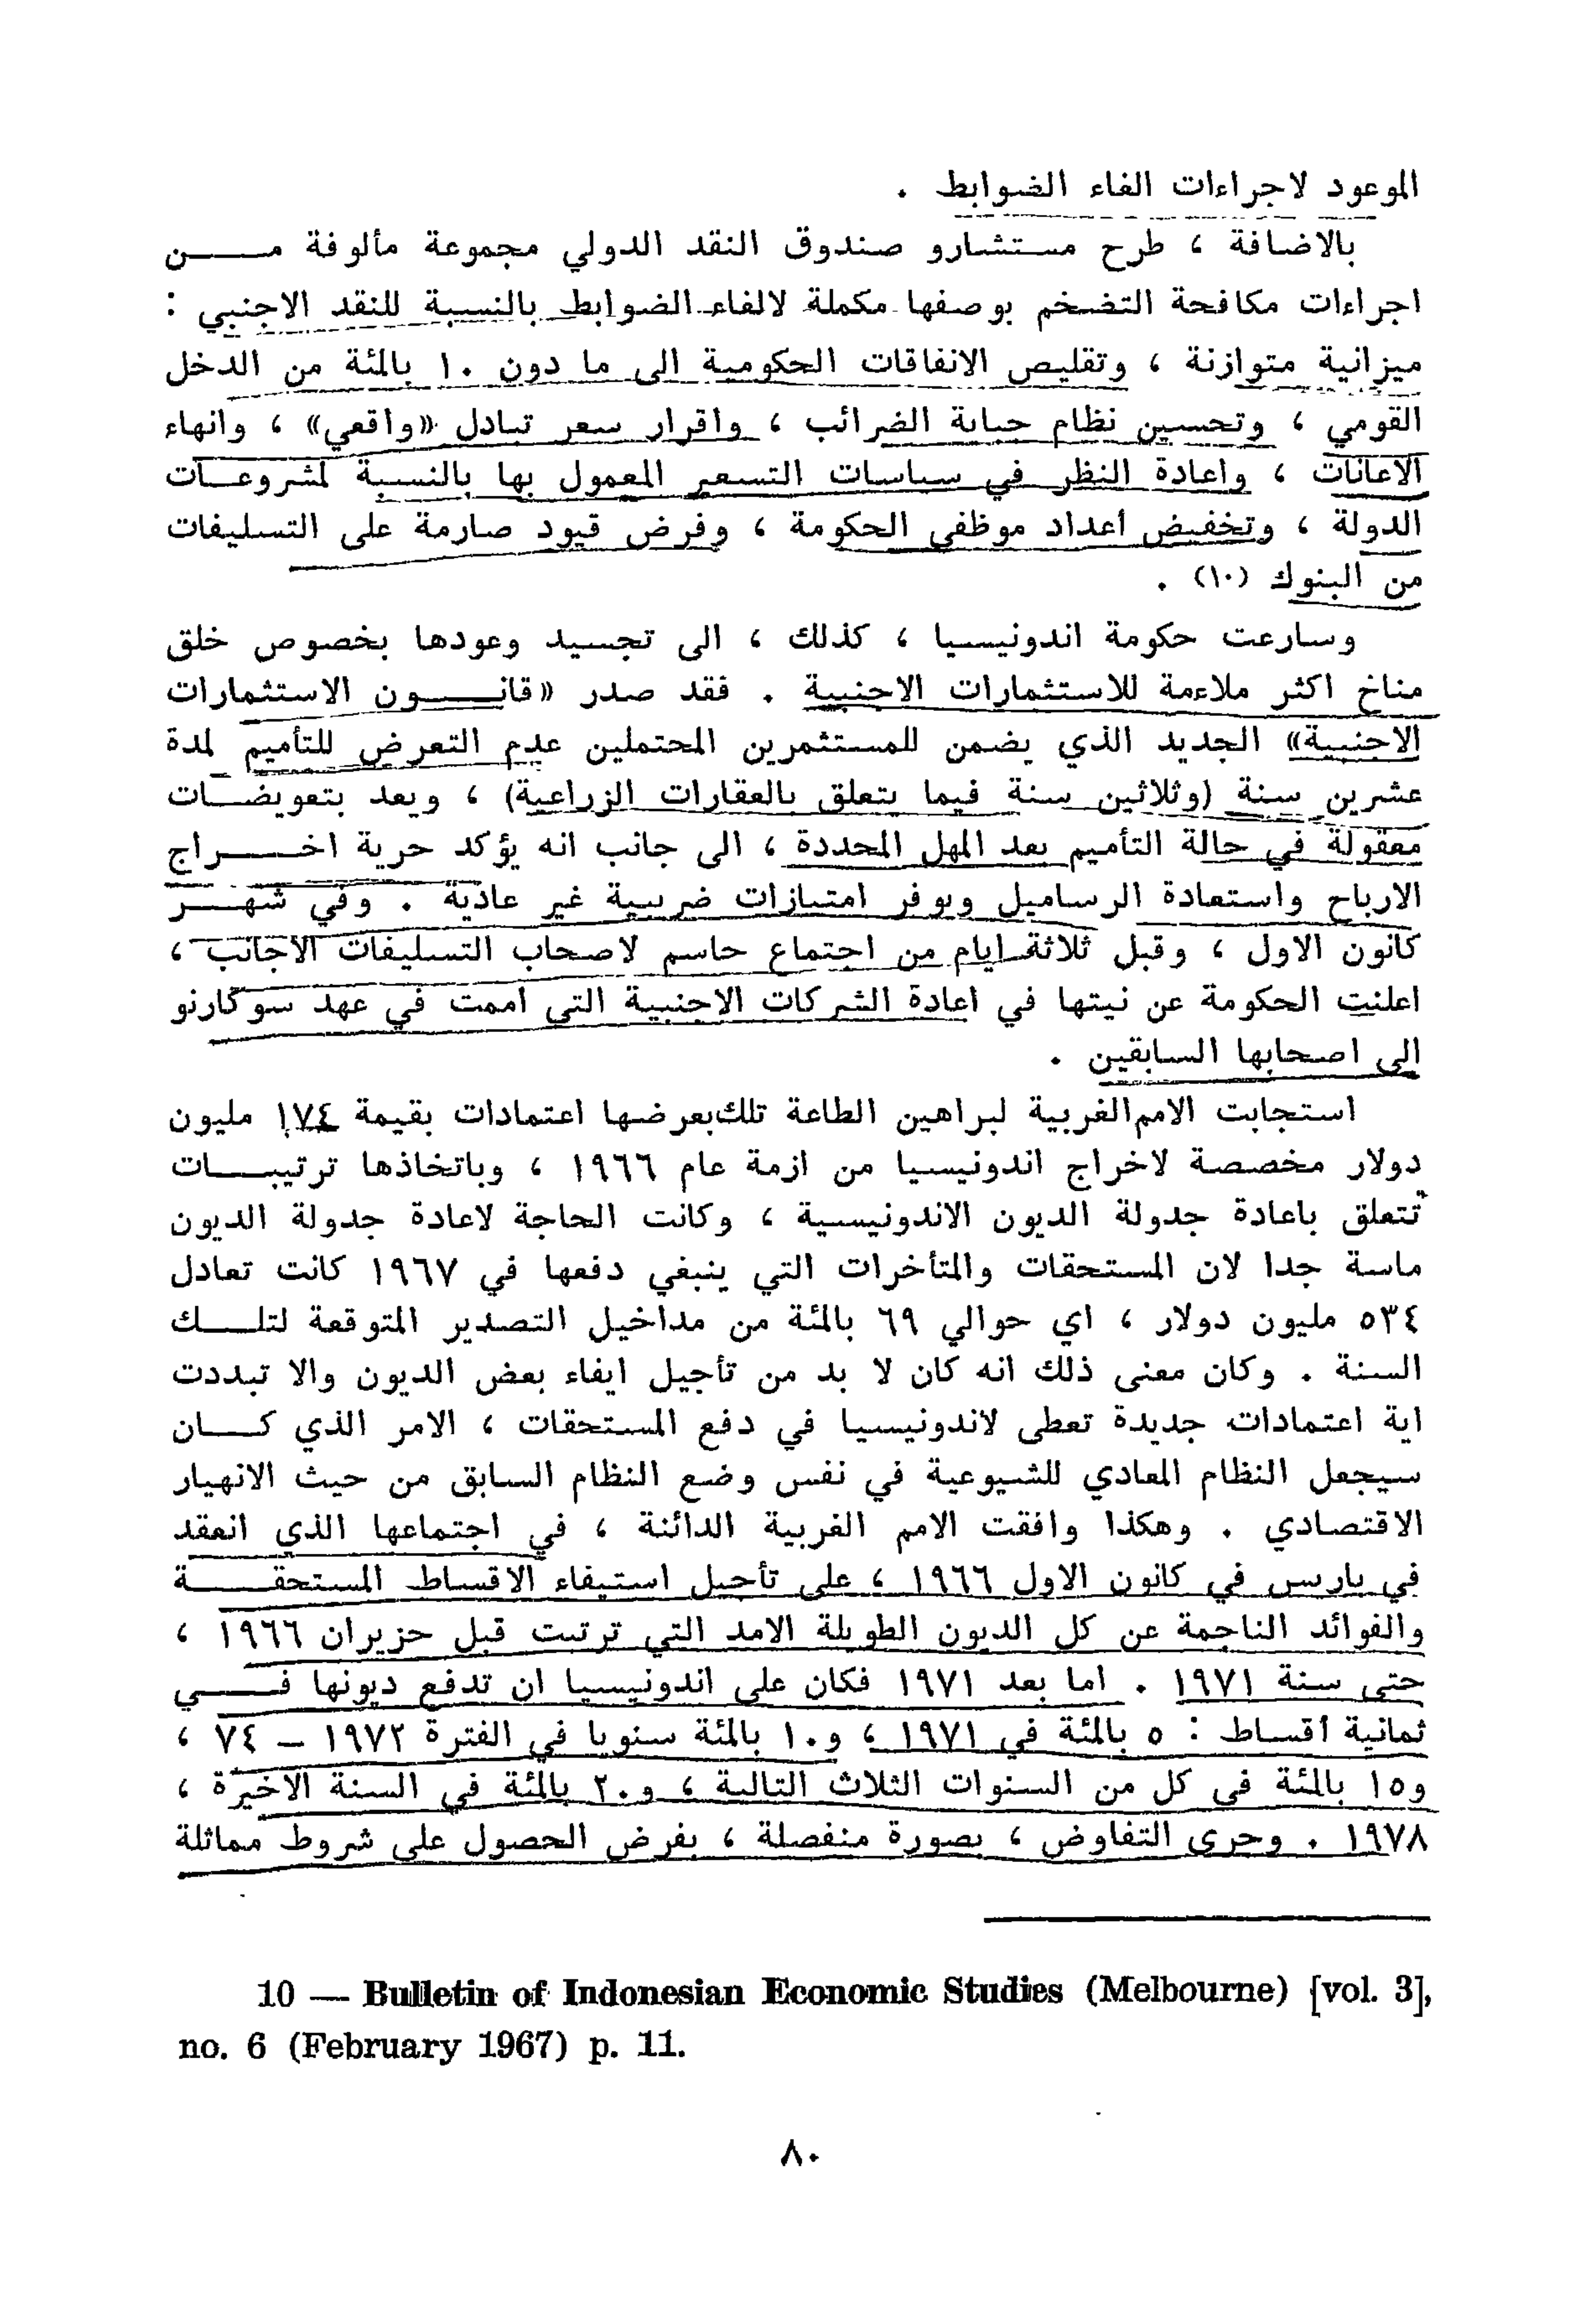 الموعود لاجراءات الغاء الضوابط .
بالاضافة ، طرح مستشارو صندوق النقد الدولي مجموعة مألوفة من
اجراءات مكافحة التضخم بوصفها مكملة لالغاء الضوابط بالنسبة للنقد الاجنبي :
ميزانية متوازنة ، وتقليص الانفاقات الحكومية الى ما دون ١٠ بالمئة من الدخل
القومي ، وتحسين نظام جباية الضرائب ، واقرار سعر تبادل «واقعي» ، وانهاء
الاعانات ، واعادة النظر في سياسات التسعير المعمول بها بالنسبة لمشروعات
الدولة ، وتخفيض أعداد موظفي الحكومة ، وفرض قيود صارمة على التسليفات
من البنوك (١٠) .
وسارعت حكومة اندونيسيا ، كذلك ، الى تجسيد وعودها بخصوص خلق
مناخ اكثر ملاءمة للاستثمارات الاجنبية . فقد صدر «قانون الاستثمارات
الاجنبية» الجديد الذي يضمن للمستثمرين المحتملين عدم التعرض للتأميم لمدة
عشرين سنة (وثلاثين سنة فيما يتعلق بالعقارات الزراعية) ، ويعد بتعويضات
معقولة في حالة التأميم بعد المهل المحددة ، الى جانب انه يؤكد حرية اخراج
الارباح واستعادة الرساميل ويوفر امتيازات ضريبية غير عادية . وفي شهر
كانون الاول ، وقبل ثلاثة ايام من اجتماع حاسم لاصحاب التسليفات الاجانب ،
اعلنت الحكومة عن نيتها في اعادة الشركات الاجنبية التي اممت في عهد سوكارنو
الى اصحابها السابقين .
استجابت الامم الغربية لبراهين الطاعة تلك بعرضها اعتمادات بقيمة ١٧٤ مليون
دولار مخصصة لاخراج اندونيسيا من ازمة عام ١٩٦٦ ، وباتخاذها ترتيبات
تتعلق باعادة جدولة الديون الاندونيسية ، وكانت الحاجة لاعادة جدولة الديون
ماسة جدا لان المستحقات والمتأخرات التي ينبغي دفعها في ١٩٦٧ كانت تعادل
٥٣٤ مليون دولار ، اي حوالي ٦٩ بالمئة من مداخيل التصدير المتوقعة لتلك
السنة . وكان معنى ذلك انه كان لا بد من تأجيل ايفاء بعض الديون والا تبددت
اية اعتمادات جديدة تعطى لاندونيسيا في دفع المستحقات ، الامر الذي كان
سيجعل النظام المعادي للشيوعية في نفس وضع النظام السابق من حيث الانهيار
الاقتصادي . وهكذا وافقت الامم الغربية الدائنة ، في اجتماعها الذي انعقد
في باريس في كانون الاول ١٩٦٦ ، على تأجيل استيفاء الاقساط المستحقة
والفوائد الناجمة عن كل الديون الطويلة الامد التي ترتبت قبل حزيران ١٩٦٦ ،
حتى سنة ١٩٧١ . اما بعد ١٩٧١ فكان على اندونيسيا ان تدفع ديونها في
ثمانية أقساط : ٥ بالمئة في ١٩٧١ ، و١٠ بالمئة سنويا في الفترة ١٩٧٢ – ٧٤ ،
و١٥ بالمئة في كل من السنوات الثلاث التالية ، و٢٠ بالمئة في السنة الاخيرة ،
١٩٧٨ . وجرى التفاوض ، بصورة منفصلة ، بغرض الحصول على شروط مماثلة
10 — Bulletin of Indonesian Economic Studies (Melbourne) [vol. 3],
no. 6 (February 1967) p. 11.
٨٠